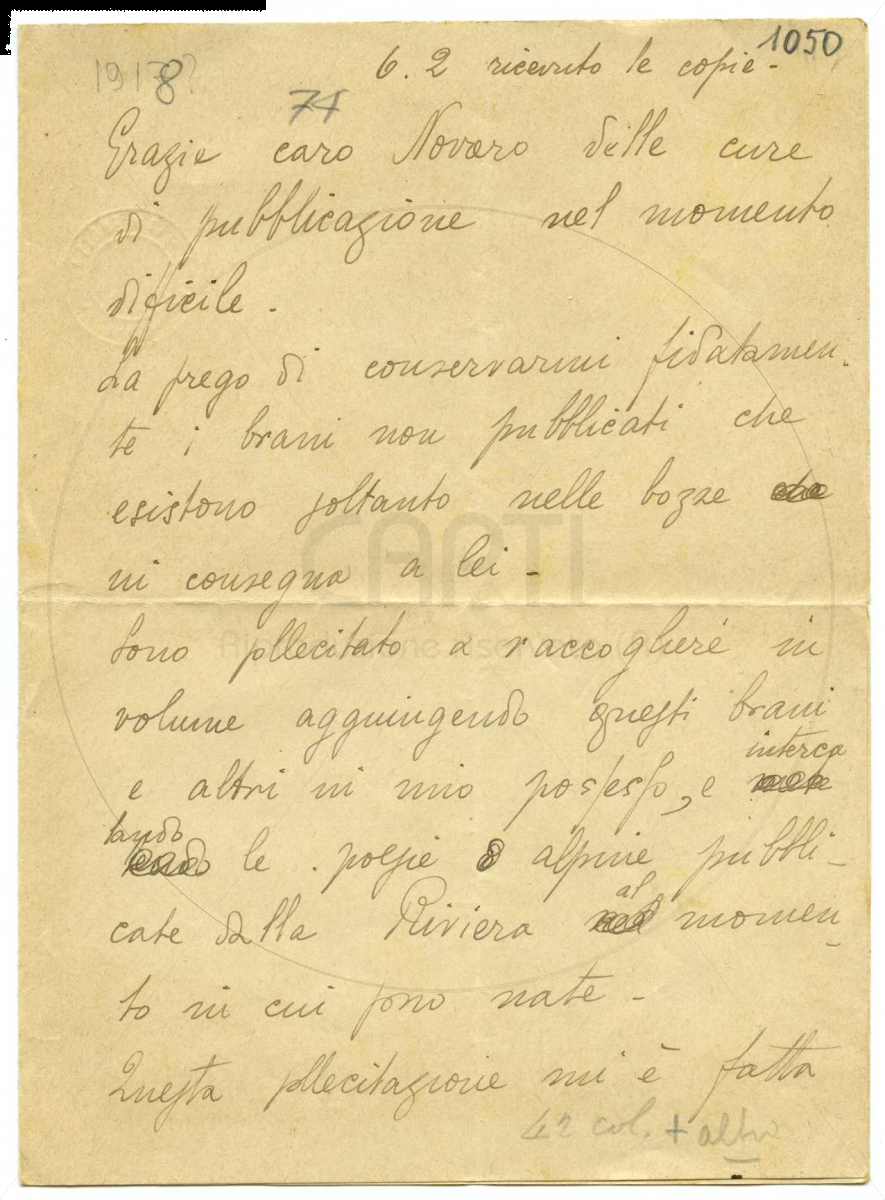 1918?
1050
6.2 ricevuto le copie -
74
Grazie caro Novaro delle cure
di pubblicazione nel momento
difficile.
La prego di conservarmi fidatamen-
te i brani non pubblicati che
esistono soltanto nelle bozze
in consegna a lei -
Sono sollecitato a raccogliere in
volume aggiungendo questi brani
e altri in mio possesso, e interca
lando le poesie alpine pubbli-
cate dalla Riviera al momen-
to in cui sono nate -
Questa sollecitazione mi è fatta
42 col. + altro
CARTI